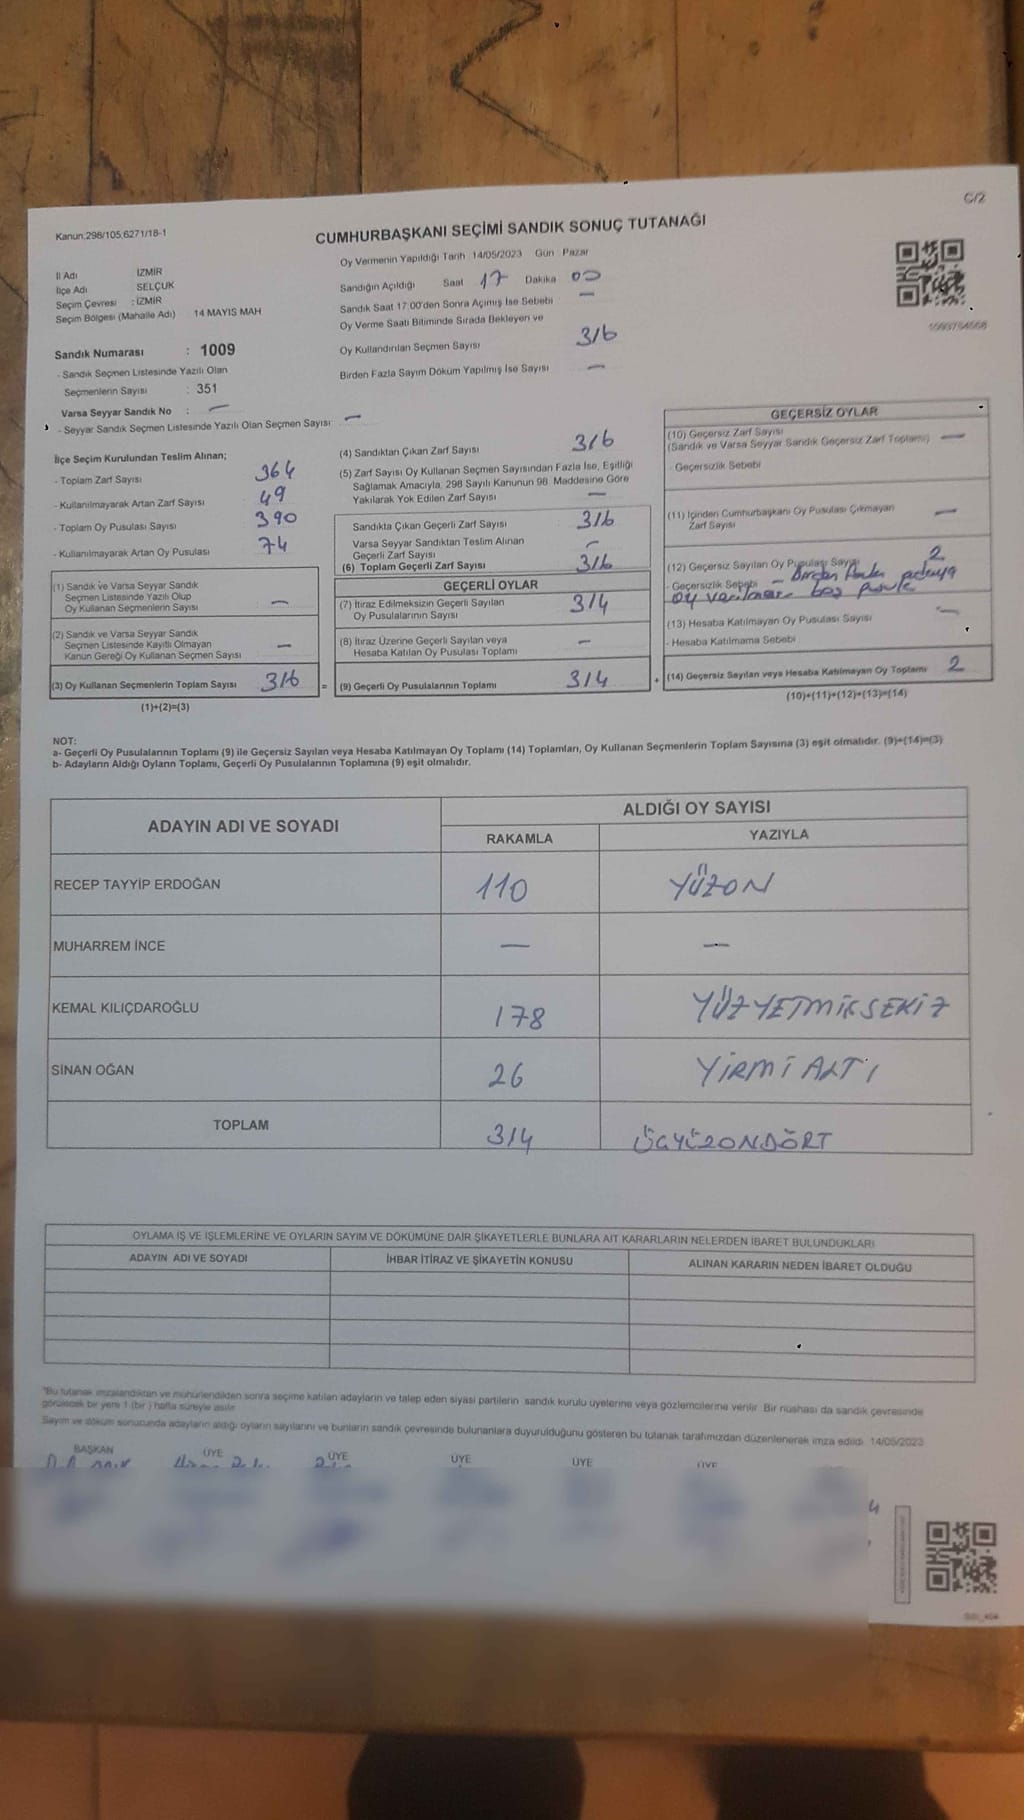 C/2
Kanun:298/105,6271/18-1
CUMHURBAŞKANI SEÇİMİ SANDIK SONUÇ TUTANAĞI
Oy Vermenin Yapıldığı Tarih 14/05/2023 Gün Pazar
İl Adı İZMİR
İlçe Adı SELÇUK
Seçim Çevresi : İZMİR
Seçim Bölgesi (Mahalle Adı) 14 MAYIS MAH
Sandığın Açıldığı Saat 17 Dakika 00
Sandık Saat 17:00'den Sonra Açımış İse Sebebi —
Oy Verme Saati Bitiminde Sırada Bekleyen ve
Oy Kullandırılan Seçmen Sayısı 316
Birden Fazla Sayım Döküm Yapılmış İse Sayısı —
Sandık Numarası : 1009
- Sandık Seçmen Listesinde Yazılı Olan
Seçmenlerin Sayısı : 351
Varsa Seyyar Sandık No : —
- Seyyar Sandık Seçmen Listesinde Yazılı Olan Seçmen Sayısı: —
İlçe Seçim Kurulundan Teslim Alınan;
- Toplam Zarf Sayısı 364
- Kullanılmayarak Artan Zarf Sayısı 49
- Toplam Oy Pusulası Sayısı 390
- Kullanılmayarak Artan Oy Pusulası 74
(1) Sandık ve Varsa Seyyar Sandık
Seçmen Listesinde Yazılı Olup
Oy Kullanan Seçmenlerin Sayısı —
(2) Sandık ve Varsa Seyyar Sandık
Seçmen Listesinde Kayıtlı Olmayan
Kanun Gereği Oy Kullanan Seçmen Sayısı —
(3) Oy Kullanan Seçmenlerin Toplam Sayısı 316 =
(1)+(2)=(3)
(4) Sandıktan Çıkan Zarf Sayısı 316
(5) Zarf Sayısı Oy Kullanan Seçmen Sayısından Fazla İse, Eşitliği
Sağlamak Amacıyla, 298 Sayılı Kanunun 98. Maddesine Göre
Yakılarak Yok Edilen Zarf Sayısı —
Sandıkta Çıkan Geçerli Zarf Sayısı 316
Varsa Seyyar Sandıktan Teslim Alınan
Geçerli Zarf Sayısı —
(6) Toplam Geçerli Zarf Sayısı 316
GEÇERLİ OYLAR
(7) İtiraz Edilmeksizin Geçerli Sayılan
Oy Pusulalarının Sayısı 314
(8) İtiraz Üzerine Geçerli Sayılan veya
Hesaba Katılan Oy Pusulası Toplamı —
(9) Geçerli Oy Pusulalarının Toplamı 314 +
GEÇERSİZ OYLAR
(10) Geçersiz Zarf Sayısı
(Sandık ve Varsa Seyyar Sandık Geçersiz Zarf Toplamı) —
- Geçersizlik Sebebi
(11) İçinden Cumhurbaşkanı Oy Pusulası Çıkmayan
Zarf Sayısı —
(12) Geçersiz Sayılan Oy Pusulası Sayısı 2
- Geçersizlik Sebebi — Birden fazla adaya
oy verilmesi boş pusula
(13) Hesaba Katılmayan Oy Pusulası Sayısı —
- Hesaba Katılmama Sebebi
(14) Geçersiz Sayılan veya Hesaba Katılmayan Oy Toplamı 2
(10)+(11)+(12)+(13)=(14)
NOT:
a- Geçerli Oy Pusulalarının Toplamı (9) ile Geçersiz Sayılan veya Hesaba Katılmayan Oy Toplamı (14) Toplamları, Oy Kullanan Seçmenlerin Toplam Sayısına (3) eşit olmalıdır. (9)+(14)=(3)
b- Adayların Aldığı Oyların Toplamı, Geçerli Oy Pusulalarının Toplamına (9) eşit olmalıdır.
ADAYIN ADI VE SOYADI ALDIĞI OY SAYISI
RAKAMLA YAZIYLA
RECEP TAYYİP ERDOĞAN 110 YÜZON
MUHARREM İNCE — —
KEMAL KILIÇDAROĞLU 178 YÜZYETMİŞSEKİZ
SİNAN OĞAN 26 YİRMİALTI
TOPLAM 314 ÜÇYÜZONDÖRT
OYLAMA İŞ VE İŞLEMLERİNE VE OYLARIN SAYIM VE DÖKÜMÜNE DAİR ŞİKAYETLERLE BUNLARA AİT KARARLARIN NELERDEN İBARET BULUNDUKLARI
ADAYIN ADI VE SOYADI İHBAR İTİRAZ VE ŞİKAYETİN KONUSU ALINAN KARARIN NEDEN İBARET OLDUĞU
"Bu tutanak imzalandıktan ve mühürlendikten sonra seçime katılan adayların ve talep eden siyasi partilerin sandık kurulu üyelerine veya gözlemcilerine verilir. Bir nüshası da sandık çevresinde
görülecek bir yere 1 (bir) hafta süreyle asılır.
Sayım ve döküm sonucunda adayların aldığı oyların sayılarını ve bunların sandık çevresinde bulunanlara duyurulduğunu gösteren bu tutanak tarafımızdan düzenlenerek imza edildi. 14/05/2023
BAŞKAN ÜYE ÜYE ÜYE ÜYE ÜYE